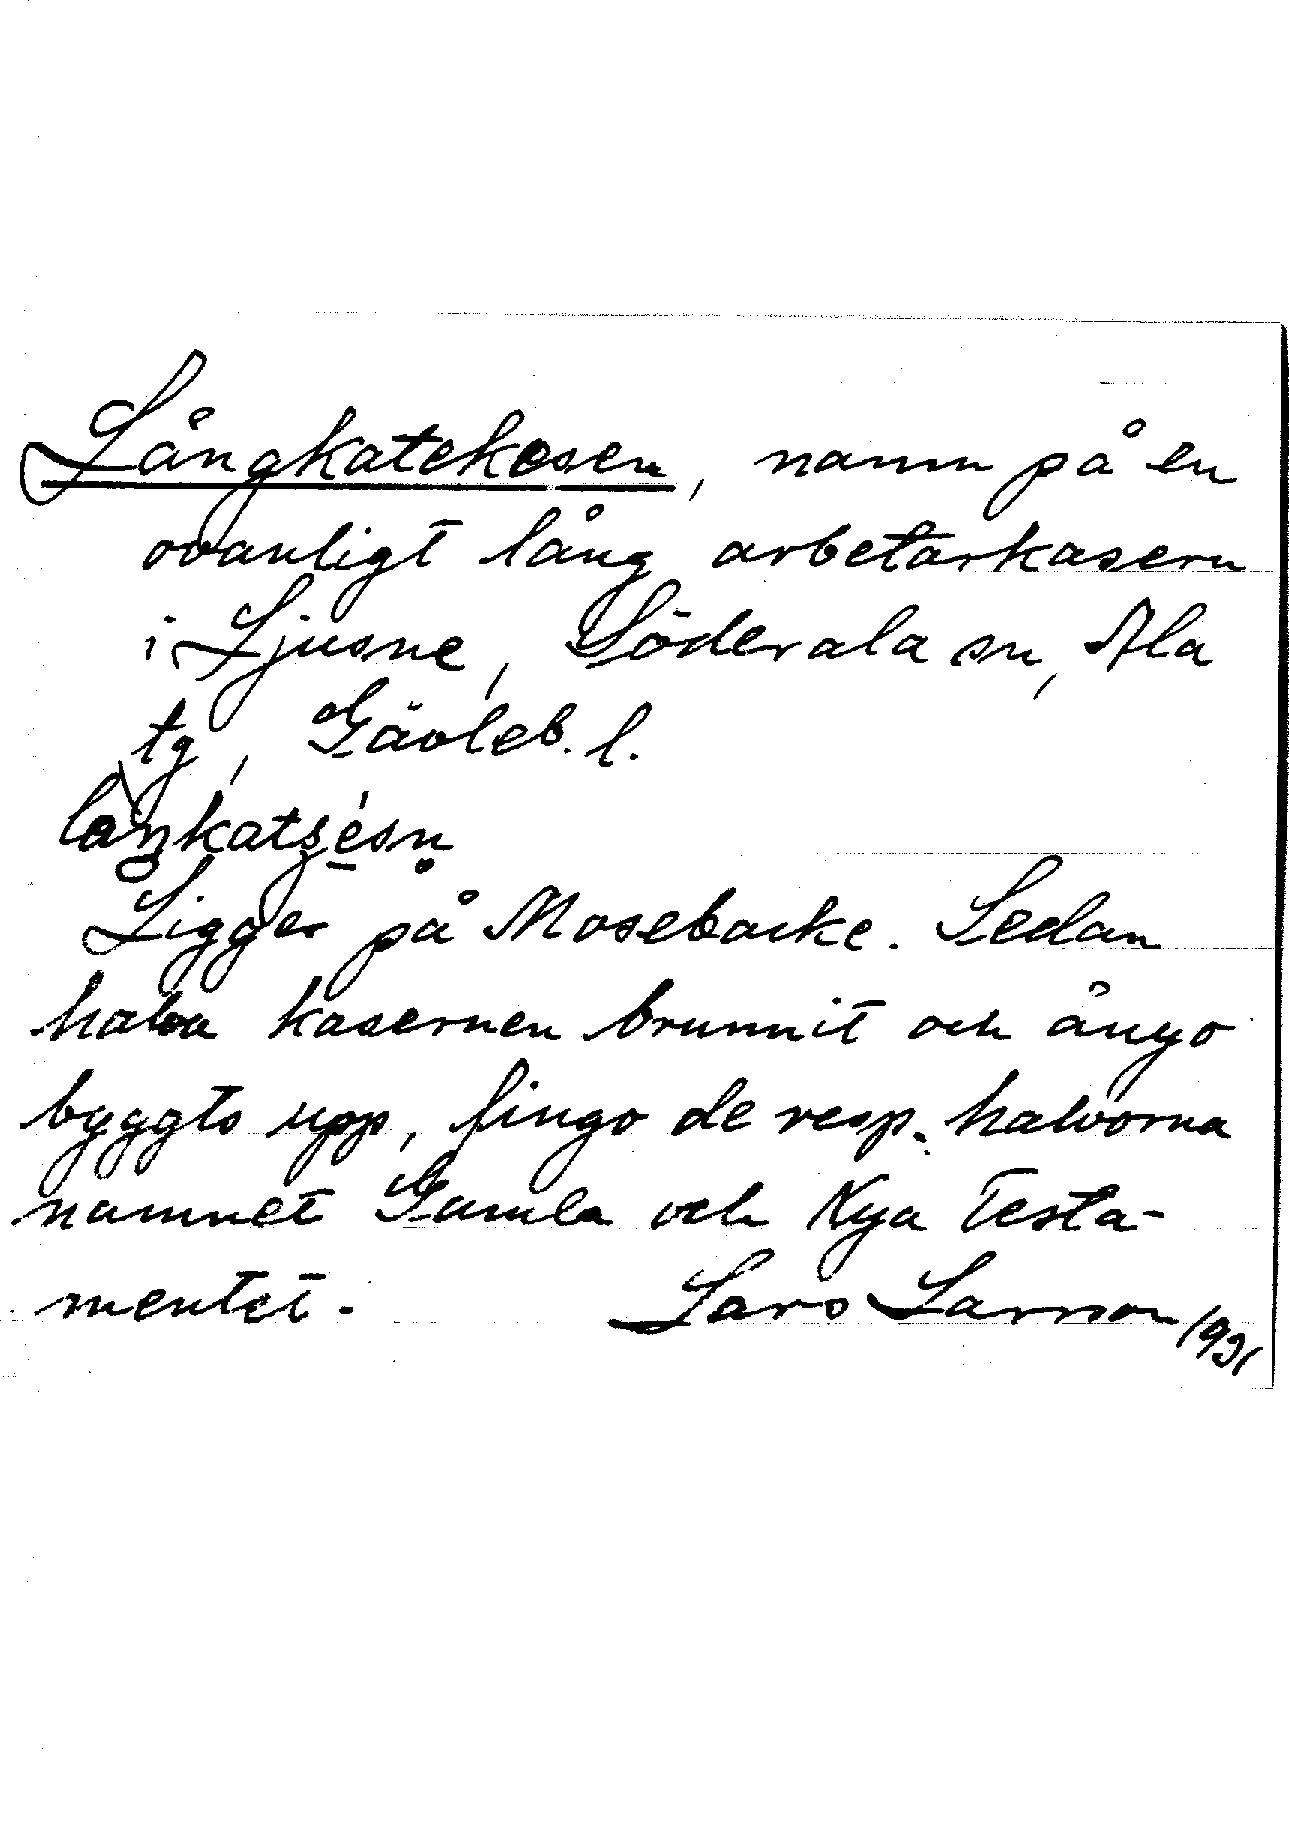 Långkatekesen, namn på en
ovanligt lång arbetarkasern
i Ljusne, Söderala sn, Ala
tg, Gävleb. l.
Ligger på Mosebacke. Sedan
halva kasernen brunnit och ånyo
byggts upp, fingo de resp. halvorna
namnet Gamla och Nya Testa-
mentet.
Lars Larsson 1931